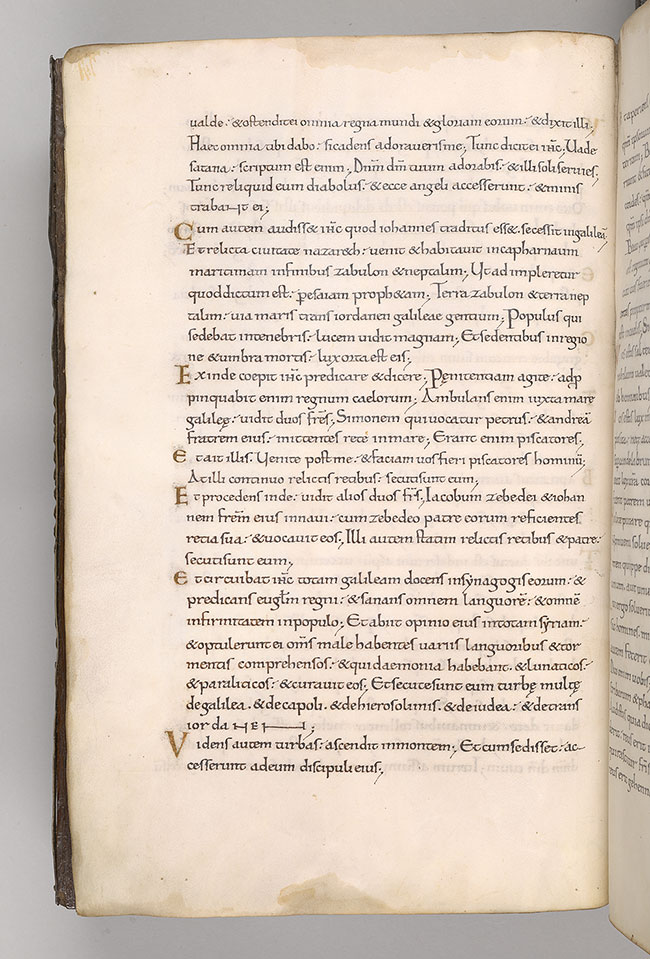 ualde: & ostendit ei omnia regna mundi & gloriam eorum: & dixit illi;
Haec omnia tibi dabo: si cadens adoraveris me; Tunc dicit ei ihc; Uade
satana: scriptum est enim; Dnm dm tuum adorabis: & illi soli servies;
Tunc reliquid eum diabolus: & ecce angeli accesserunt: & minis
trabant ei;
Cum autem audiss& ihc quod iohannes traditus ess&: secessit in galileā;
Et relicta civitate nazar&h: venit & habitavit in capharnaum
maritimam in finibus zabulon & neptalim; Ut adimpleretur
quod dictum est: per esaiam proph&am; Terra zabulon & terra nep
talim: via maris trans iordanen galileae gentium; Populus qui
sedebat in tenebris: lucem vidit magnam; Et sedentibus in regio
ne & umbra mortis: lux orta est eis;
Exinde coepit ihc predicare & dicere; Penitentiam agite: adp
pinquabit enim regnum caelorum; Ambulans enim iuxta mare
galileę: vidit duos frēs; Simonem qui vocatur petrus: & andreā
fratrem eius: mittentes rete in mare; Erant enim piscatores;
Et ait illis; Uenite post me: & faciam vos fieri piscatores hominū;
At illi continuo relictis retibus: secuti sunt eum;
Et procedens inde: vidit alios duos frs; Iacobum zebedei & iohan
nem frem eius in navi: cum zebedeo patre eorum reficientes
retia sua: & vocavit eos; Illi autem statim relictis retibus & patre:
secuti sunt eum;
Et circuibat ihc totam galileam docens in synagogis eorum: &
predicans euglm regni: & sanans omnem languorē: & omnē
infirmitatem in populo; Et abiit opinio eius in totam syriam:
& optulerunt ei oms male habentes variis languoribus & tor
mentis comprehensos: & qui daemonia habebant: & lunaticos:
& paraliticos: & curavit eos; Et secute sunt eum turbę multę
de galilea. & decapoli. & de hierosolimis. & de iudea: & de trans
iordanen;
Videns autem turbas: ascendit in montem; Et cum sedisset: ac-
cesserunt ad eum discipuli eius;